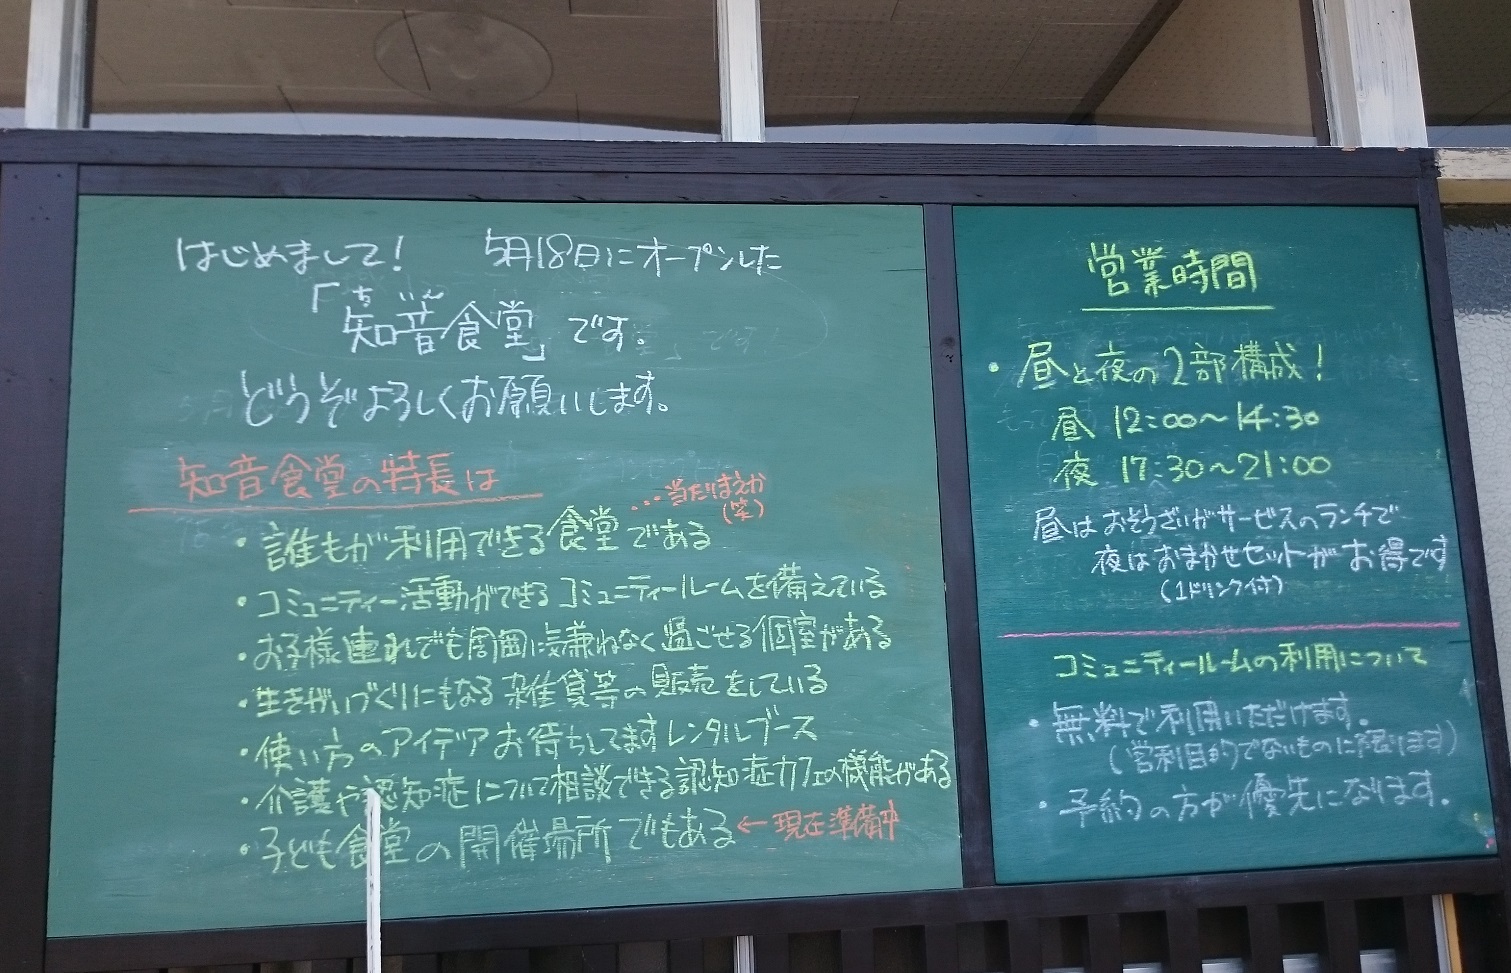 はじめまして! 5月18日にオープンした
「知音食堂」です。
どうぞよろしくお願いします。
知音食堂の特長は
・誰もが利用できる食堂である …当たりまえか(笑)
・コミュニティー活動ができるコミュニティールームを備えている
・お子様連れでも周囲に気兼ねなく過ごせる個室がある
・生きがいづくりにもなる雑貨等の販売をしている
・使い方のアイデアお待ちしてますレンタルブース
・介護や認知症について相談できる認知症カフェの機能がある
・子ども食堂の開催場所でもある←現在準備中
営業時間
・昼と夜の2部構成!
昼 12:00〜14:30
夜 17:30〜21:00
昼はおそうざいがサービスのランチで
夜はおまかせセットがお得です
(1ドリンク付)
コミュニティールームの利用について
・無料で利用いただけます。
(営利目的でないものに限ります)
・予約の方が優先になります。